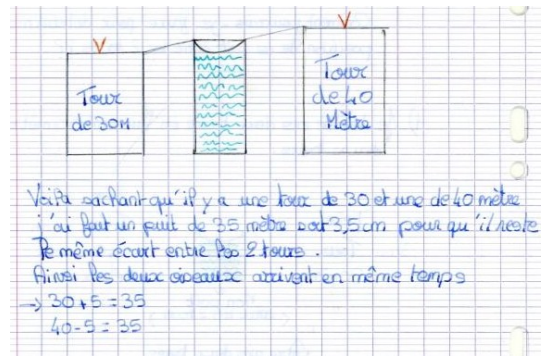 Tour
de 30M
Tour
de 40
Mètre
Voilà sachant qu'il y a une tour de 30 et une de 40 mètre
j'ai fait un puit de 35 mètre soit 3,5 cm pour qu'il reste
le même écart entre les 2 tours.
Ainsi les deux oiseaux arrivent en même temps
→ 30 + 5 = 35
40 - 5 = 35